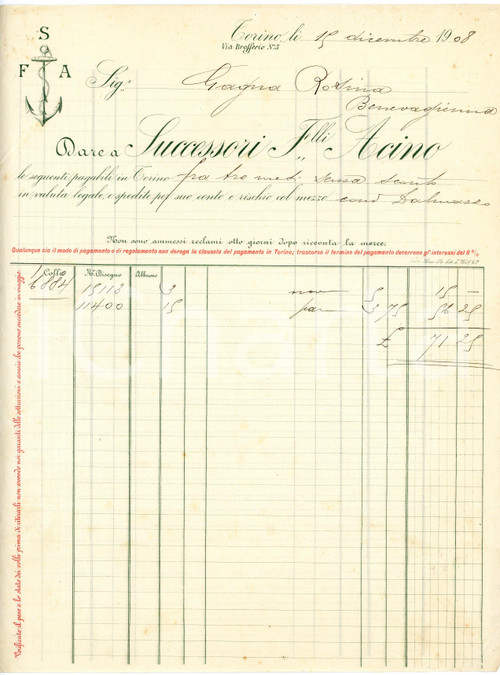 S
F A
Torino, li 15 dicembre 1908
Via Brofferio N.3
Sig.ª Gagna Rosina
Benevagienna
Dare a Successori F.lli Acino
le seguente pagabili in Torino fra tre mesi senza sconto
in valuta legale, e spedite per suo conto e rischio col mezzo cond Dalmasso
Non sono ammessi reclami otto giorni dopo ricevuta la merce.
Qualunque sia il modo di pagamento o di regolamento non deroga la clausola del pagamento in Torino; trascorso il termine del pagamento decorrono gl'interessi del 6%
1 Collo N. Disegno Albume
6884 15113 3 5 15 —
11400 15 3 75 56 25
£ 71 25
Verificate il peso e lo stato dei colli prima di ritirarli non essendo noi garanti delle sottrazioni o avarie che possono succedere in viaggio.